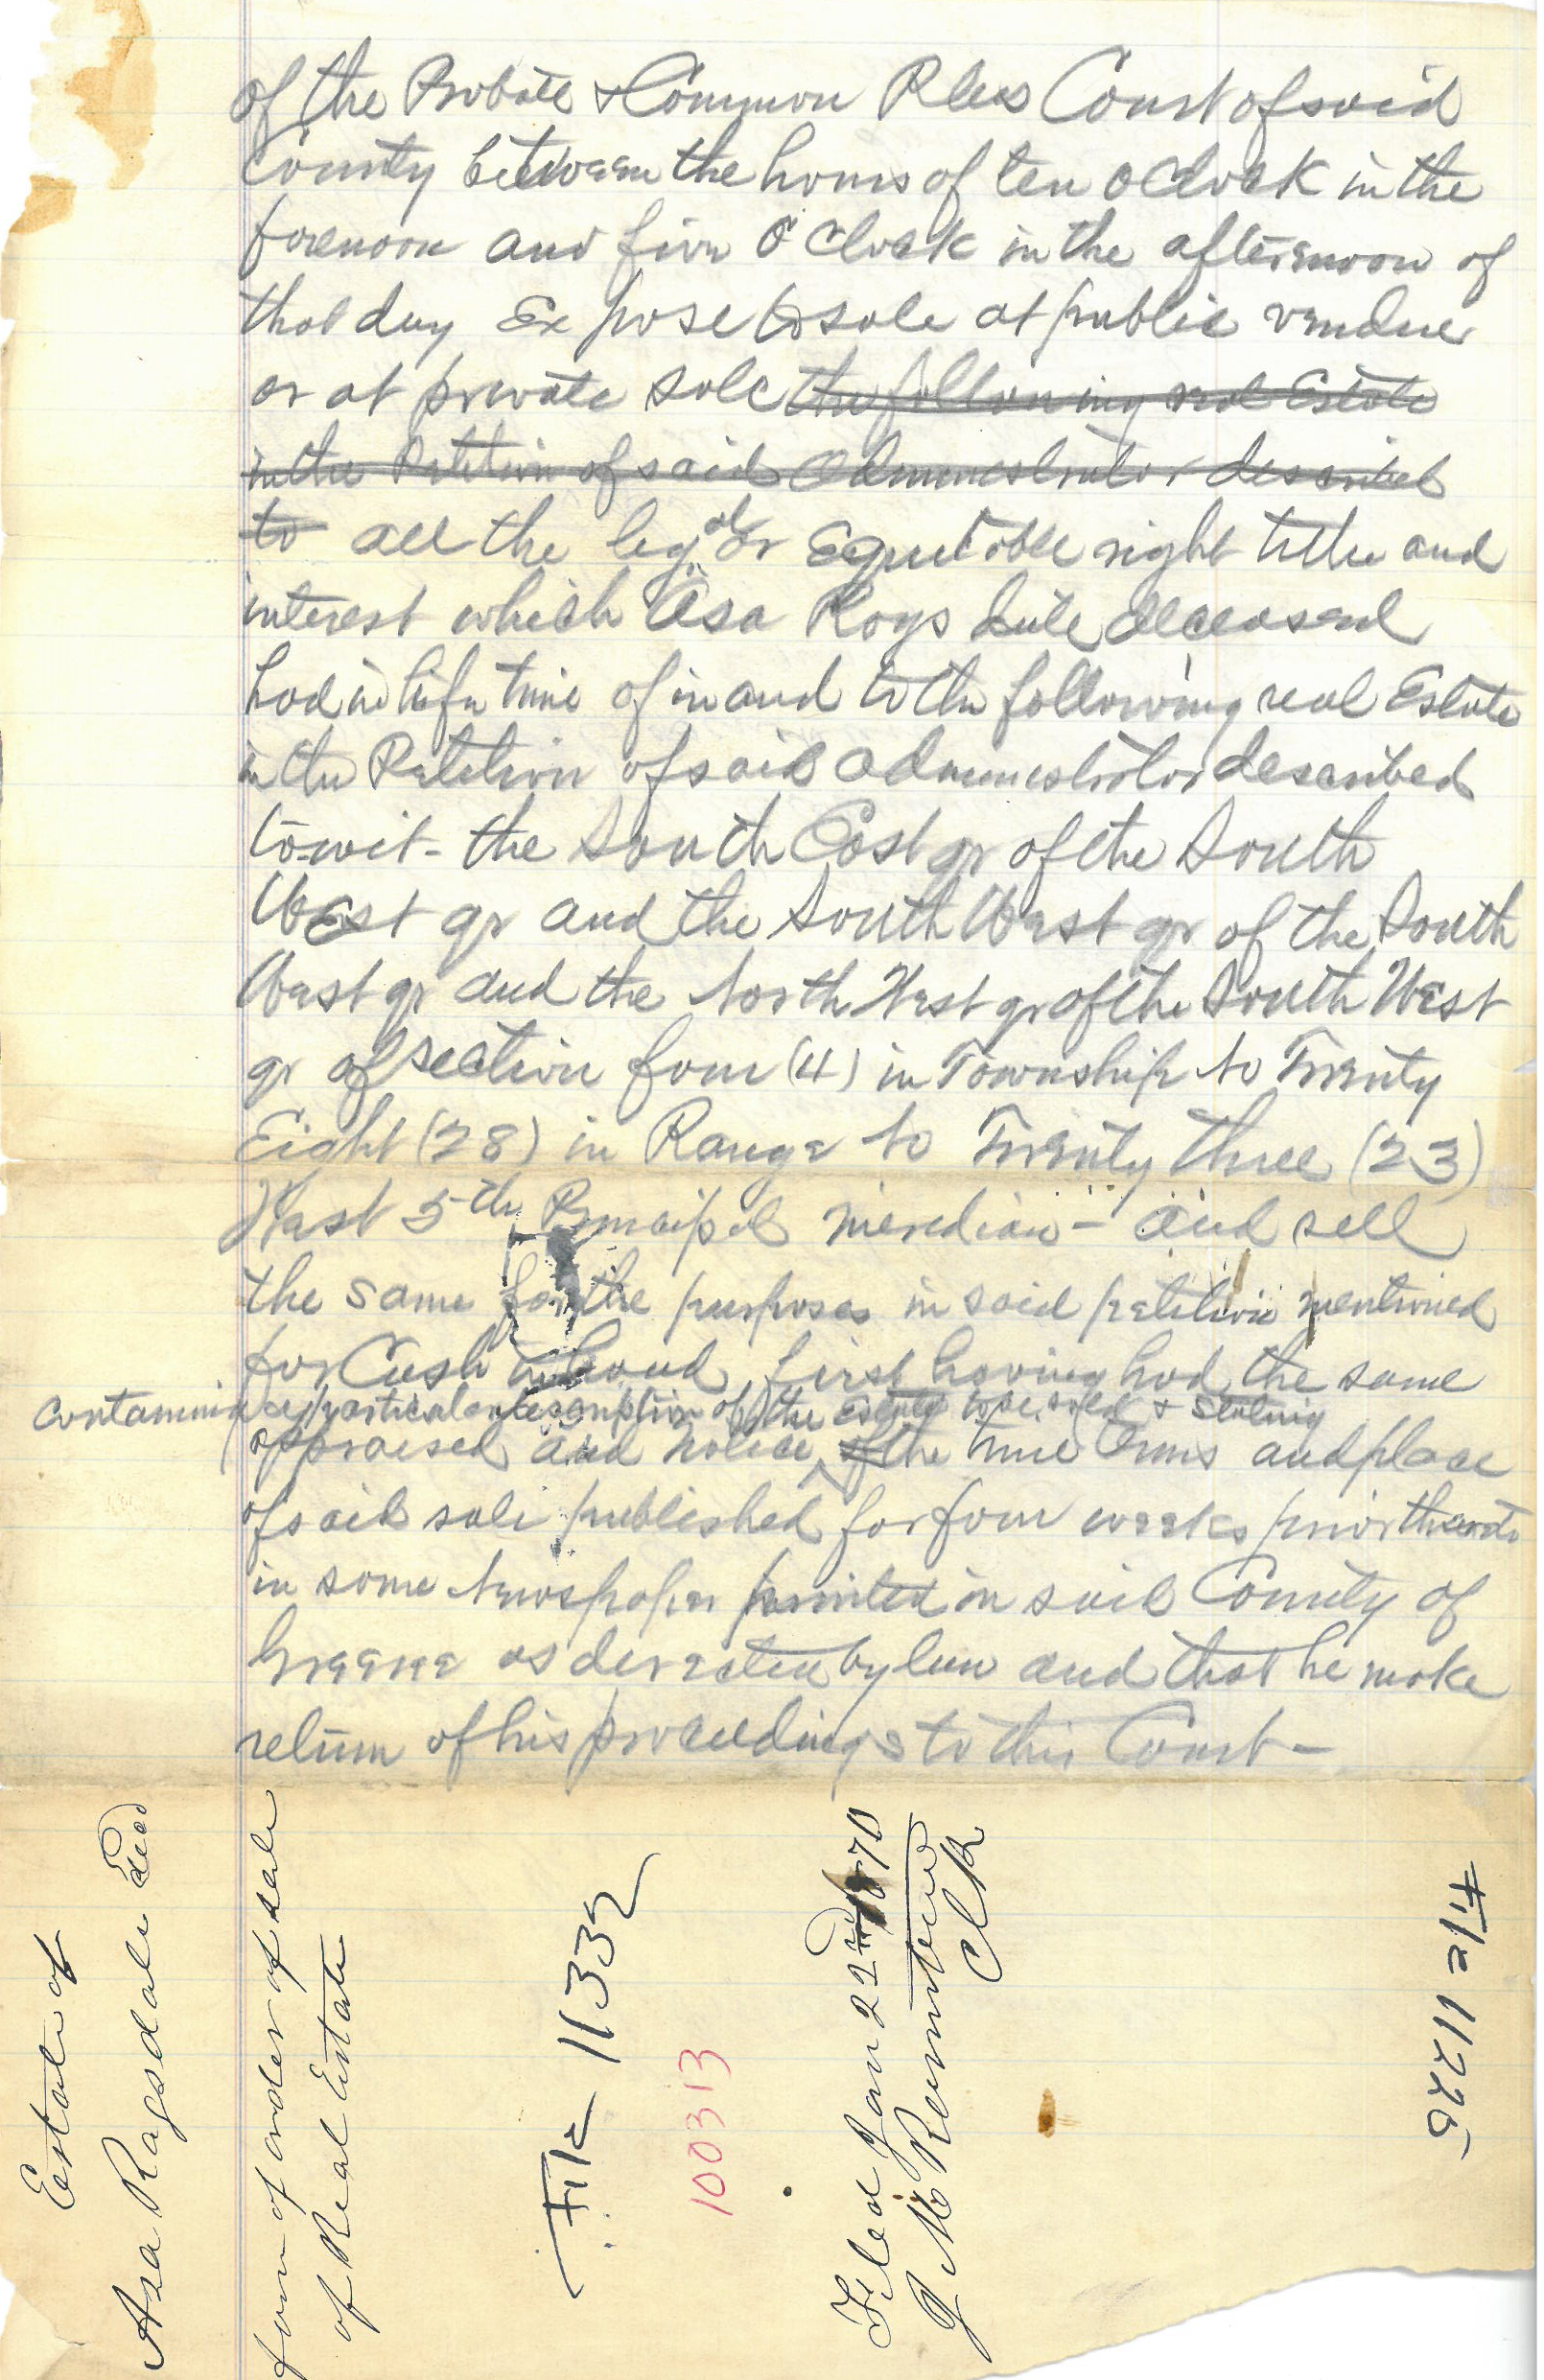 of the Probate & Common Pleas Court of said
County between the hours of ten o Clock in the
forenoon and five O Clock in the afternoon of
that day Expose to sale at public vendue
or at private sale the following real Estate
in the Petition of said Administrator described
to all the legal or Equitable right title and
interest which Asa Rags dale deceased
had in life time of in and to the following real Estate
in the Petition of said administrator described
to-wit- the South East qr of the South
West qr and the South West qr of the South
West qr and the North West qr of the South West
qr of section four (4) in Township No Twenty
Eight (28) in Range No Twenty three (23)
West 5th Principal meredian - and sell
the same for the purposes in said petition mentioned
for Cash in hand, first having had the same
containing a particular description of the estate to be sold & stating
appraised and notice of the time terms and place
of said sale published for four weeks prior thereto
in some Newspaper printed in said County of
Greene as directed by law and that he make
return of his proceedings to this Court -
Estate of
Asa Ragsdale Decd
form of order of sale
of Real Estate
File 11332
10313
Filed Jan 22nd 1870
J M
Clk
File 11225